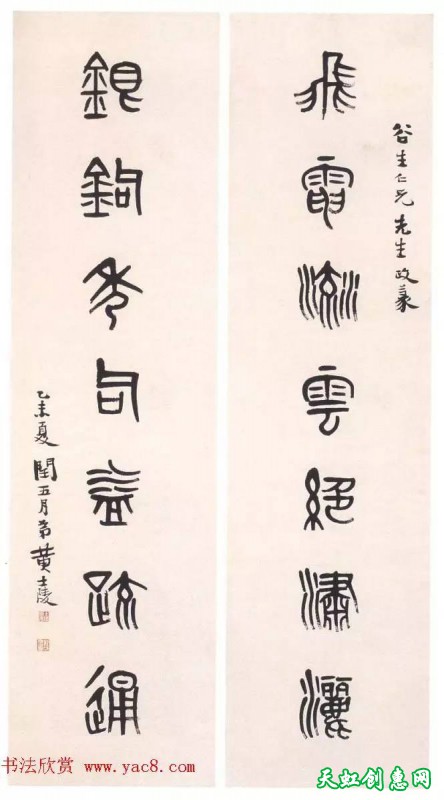 谷生仁兄先生政篆
飛電流雲絕瀟灑
銀鉤秀句益疏通
乙未夏閏五月弟黃士陵
书法欣赏 www.yac8.com
天虹创意网